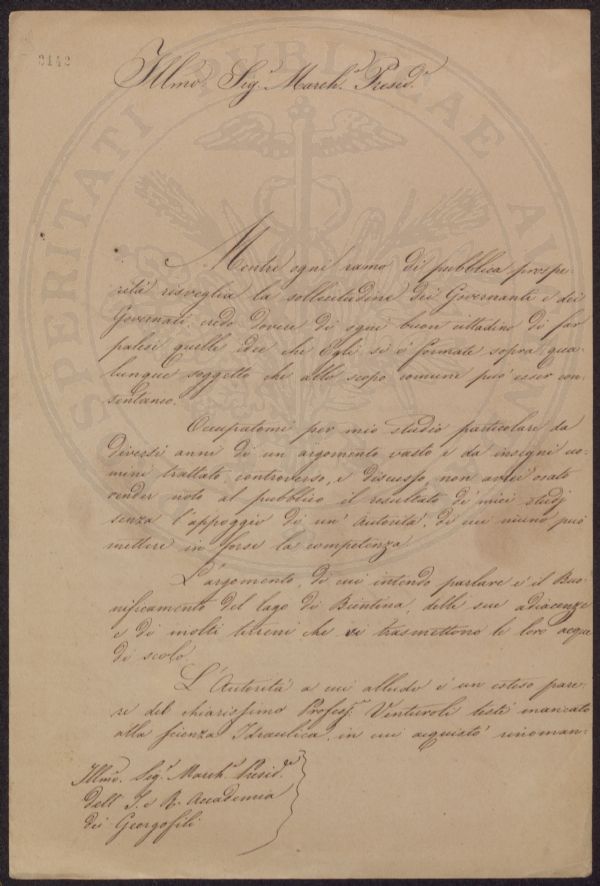 2142
Illmo. Sigr. Marche. Preside.
Mentre ogni ramo di pubblica prospe-
rità risveglia la sollecitudine dei Governanti e dei
Governati, credo dovere di ogni buon cittadino di far
palesi quelle idee che Egli si è formate sopra qua-
lunque soggetto che allo scopo comune può esser con-
sentaneo.
Occupatomi per mio studio particolare da
diversi anni di un argomento vasto e da insigni uo-
mini trattato, controverso, e discusso, non avrei osato
render noto al pubblico il resultato de' miei studj
senza l'appoggio di un' Autorità, di cui niuno può
mettere in forse la competenza.
L'argomento, di cui intendo parlare è il Buo-
nificamento del Lago di Bientina, delle sue adiacenze
e di molti terreni che vi trasmettono le loro acque
di scolo.
L'Autorità a cui alludo è un esteso pare-
re del chiarissimo Profess. Venturoli testè mancato
alla scienza Idraulica, in cui acquistò rinoman-
Illmo. Sigr. Marche. Preside.
dell' I. e R. Accademia
dei Georgofili